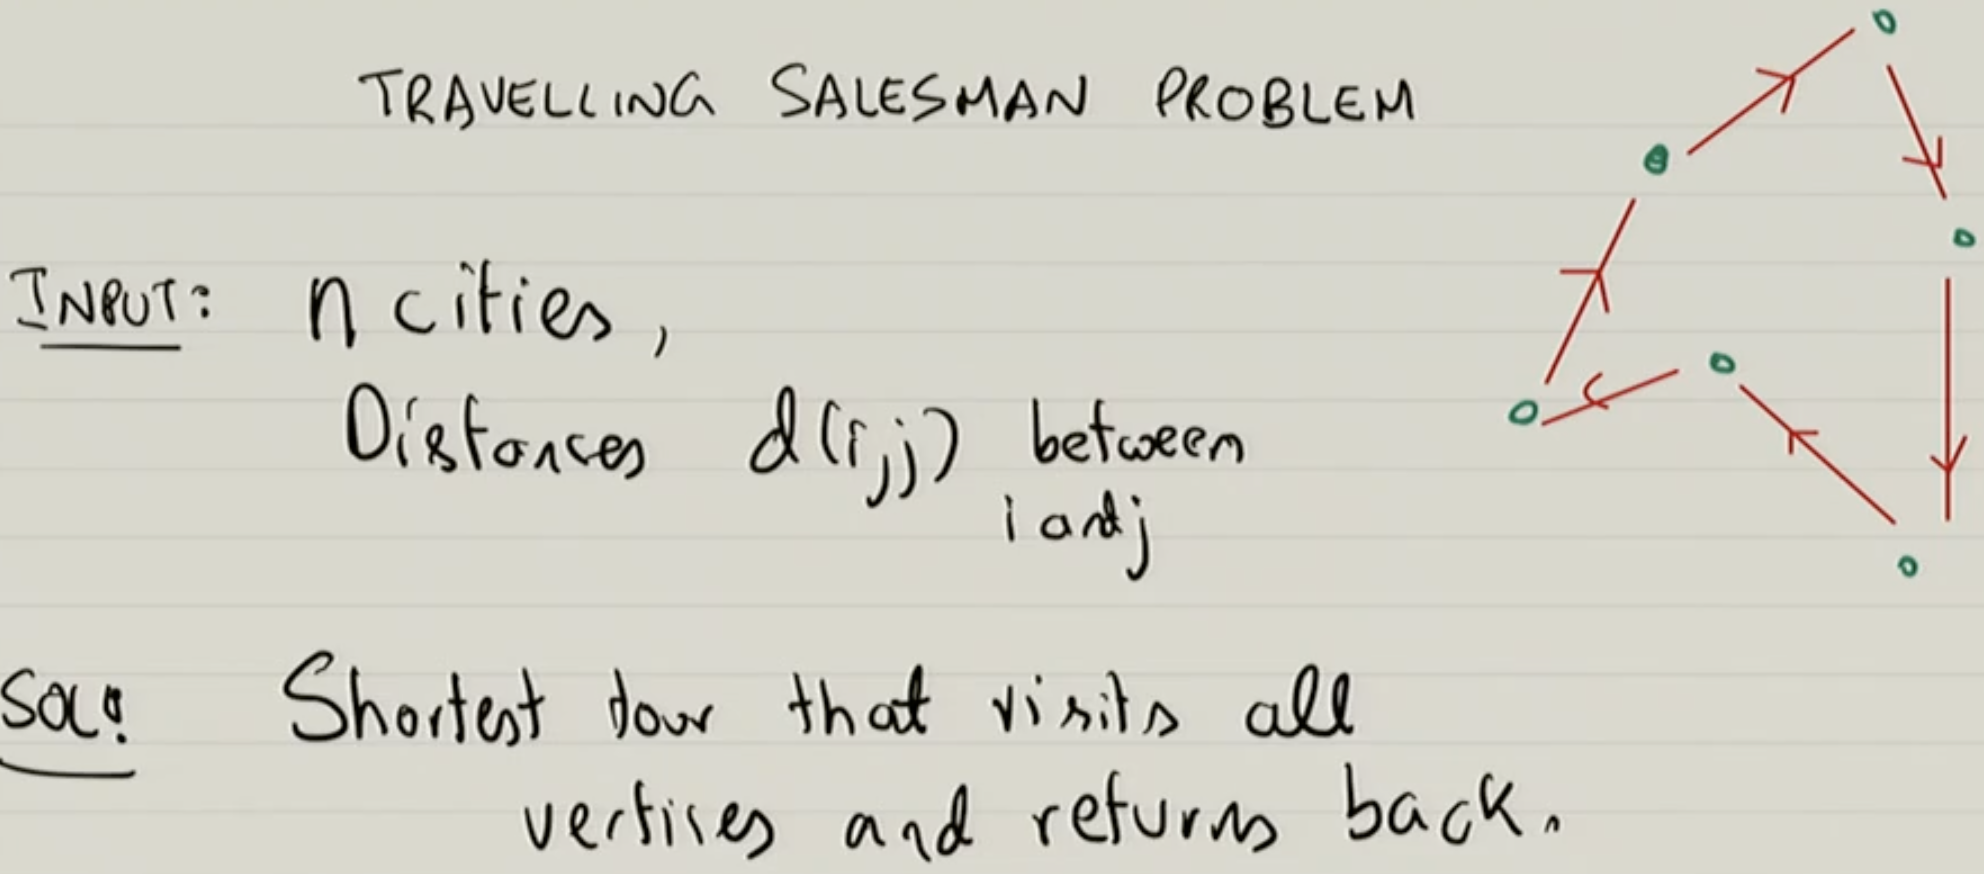 TRAVELLING SALESMAN PROBLEM
INPUT: n cities,
Distances d(i,j) between
i and j
SOL: Shortest tour that visits all
vertises and returns back.